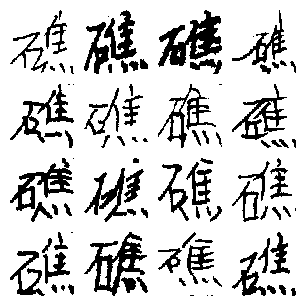 礁礁礁礁
礁礁礁礁
礁礁礁礁
礁礁礁礁